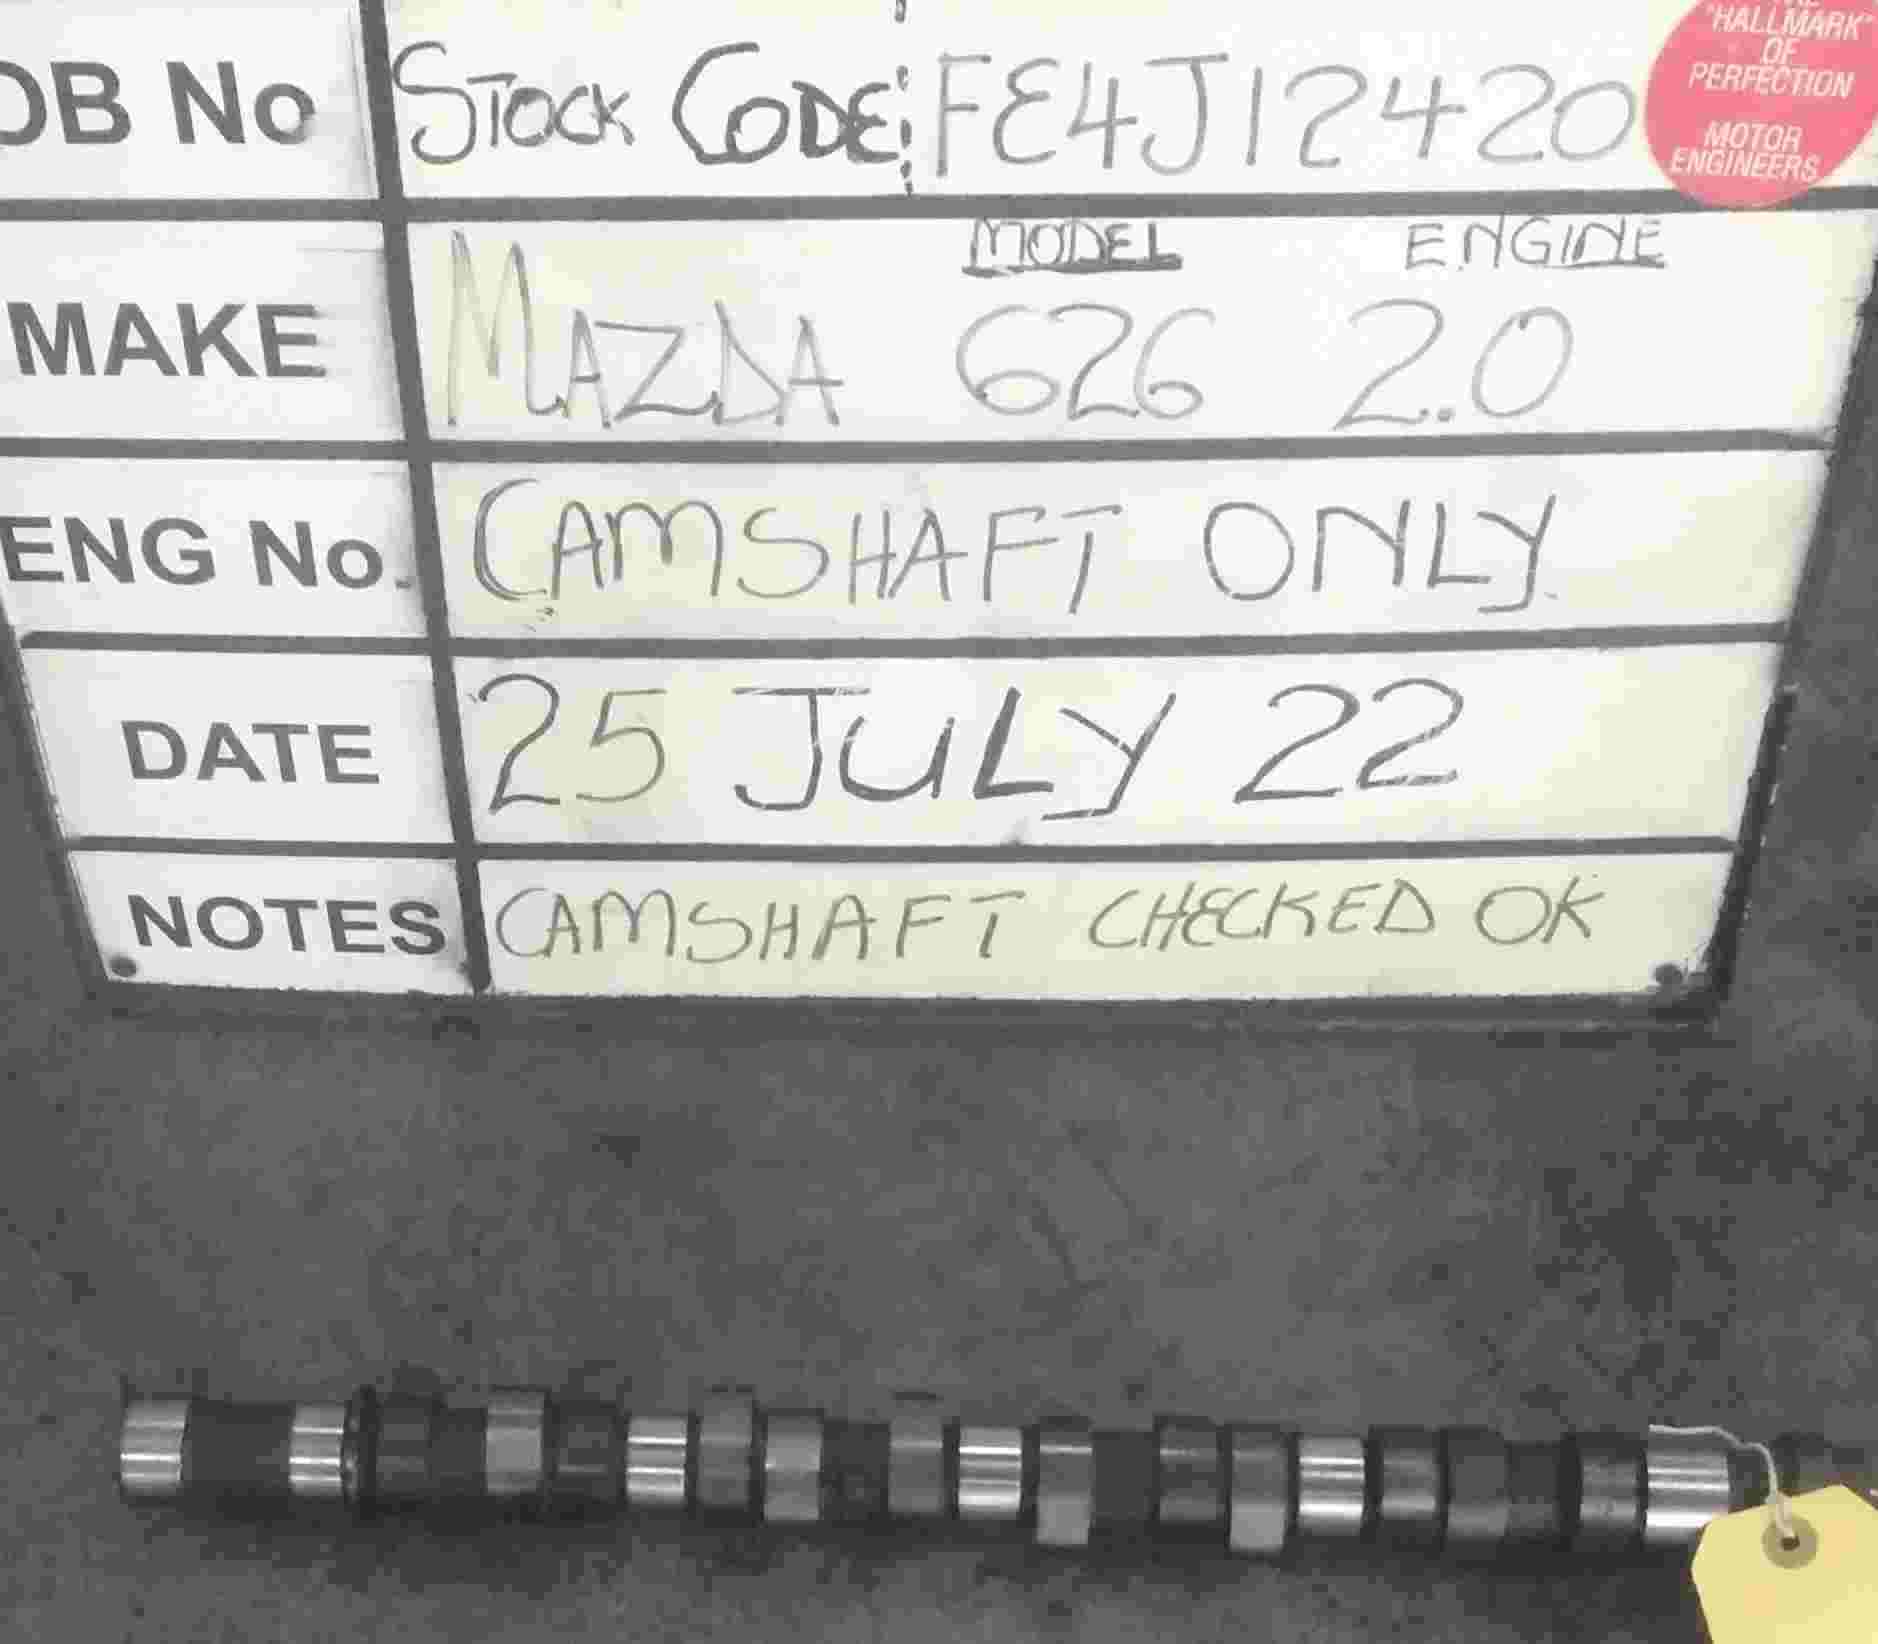 OB No STOCK CODE: FE4J12420
"HALLMARK"
OF
PERFECTION
MOTOR
ENGINEERS
MODEL ENGINE
MAKE MAZDA 626 2.0
ENG No. CAMSHAFT ONLY
DATE 25 JULY 22
NOTES CAMSHAFT CHECKED OK